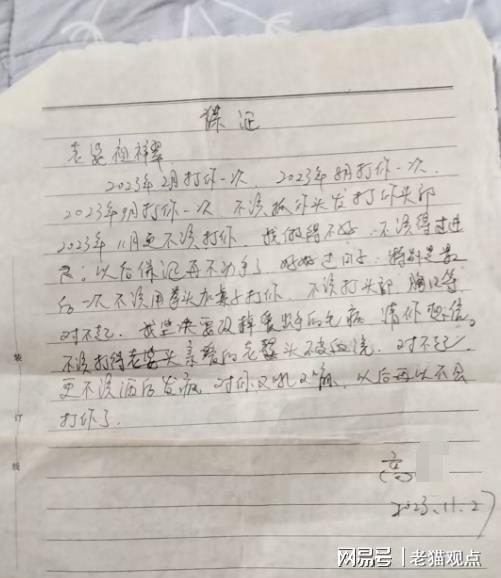 保证
老婆祖祥翠
2023年2月打你一次 2023年8月打你一次
2023年9月打你一次 不该抓你头发打你头部
2023年11月更不该打你 我做得不好 不该得过进
尺：以后保证再不动手了 好好过日子 特别是最
后一次 不该用拳头 打你 不该打头部 胸口等
对不起 我坚决要改掉 出手的毛病 请你相信。
不该打得老婆头 的老婆头 对不起
更不该酒后发疯 对你又吼又 以后再以不会
打你了.
高
2023.11.27
装
订
线
网易号 老猫观点